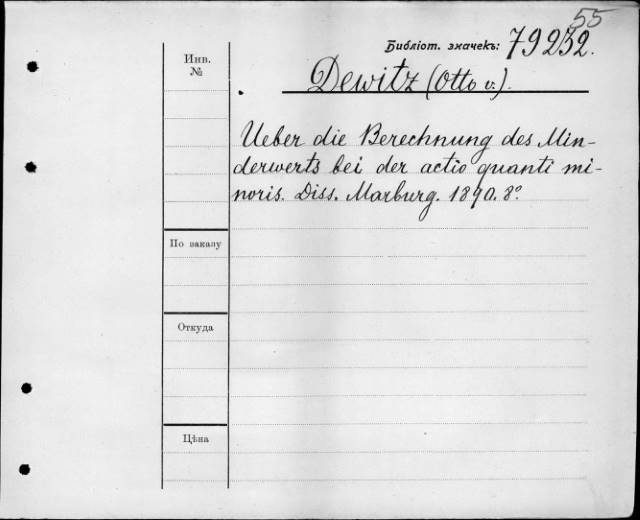 55
Библіот. значекъ: 79252.
Инв.
№
Dewitz (Otto v.).
Ueber die Berechnung des Min-
derwerts bei der actio quanti mi-
noris. Diss. Marburg. 1890. 8°.
По заказу
Откуда
Цѣна